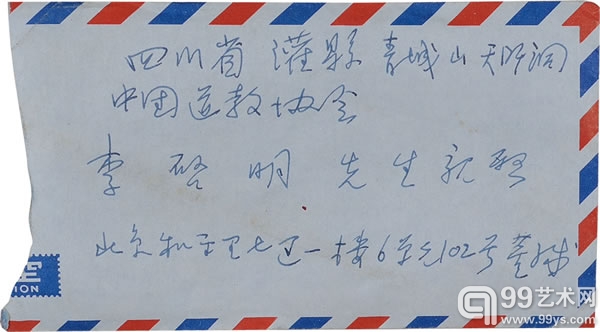 四川省 灌縣 青城山天师洞
中国道教协会
李啓明先生親啓
北京和平里七区一楼6单元102号董
99艺术网
www.99ys.com